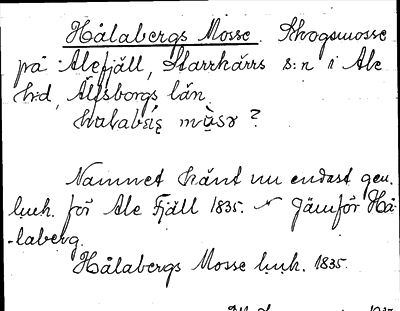 Hålabergs Mosse. Skogsmosse
på Alefjäll, Starrkärrs s:n i Ale
hrd, Älfsborgs län.
mùsǝ ?
Namnet känt nu endast gen.
luh. för Ale Fjäll 1835. Jämför Hå-
-laberg.
Hålabergs Mosse luh. 1835.